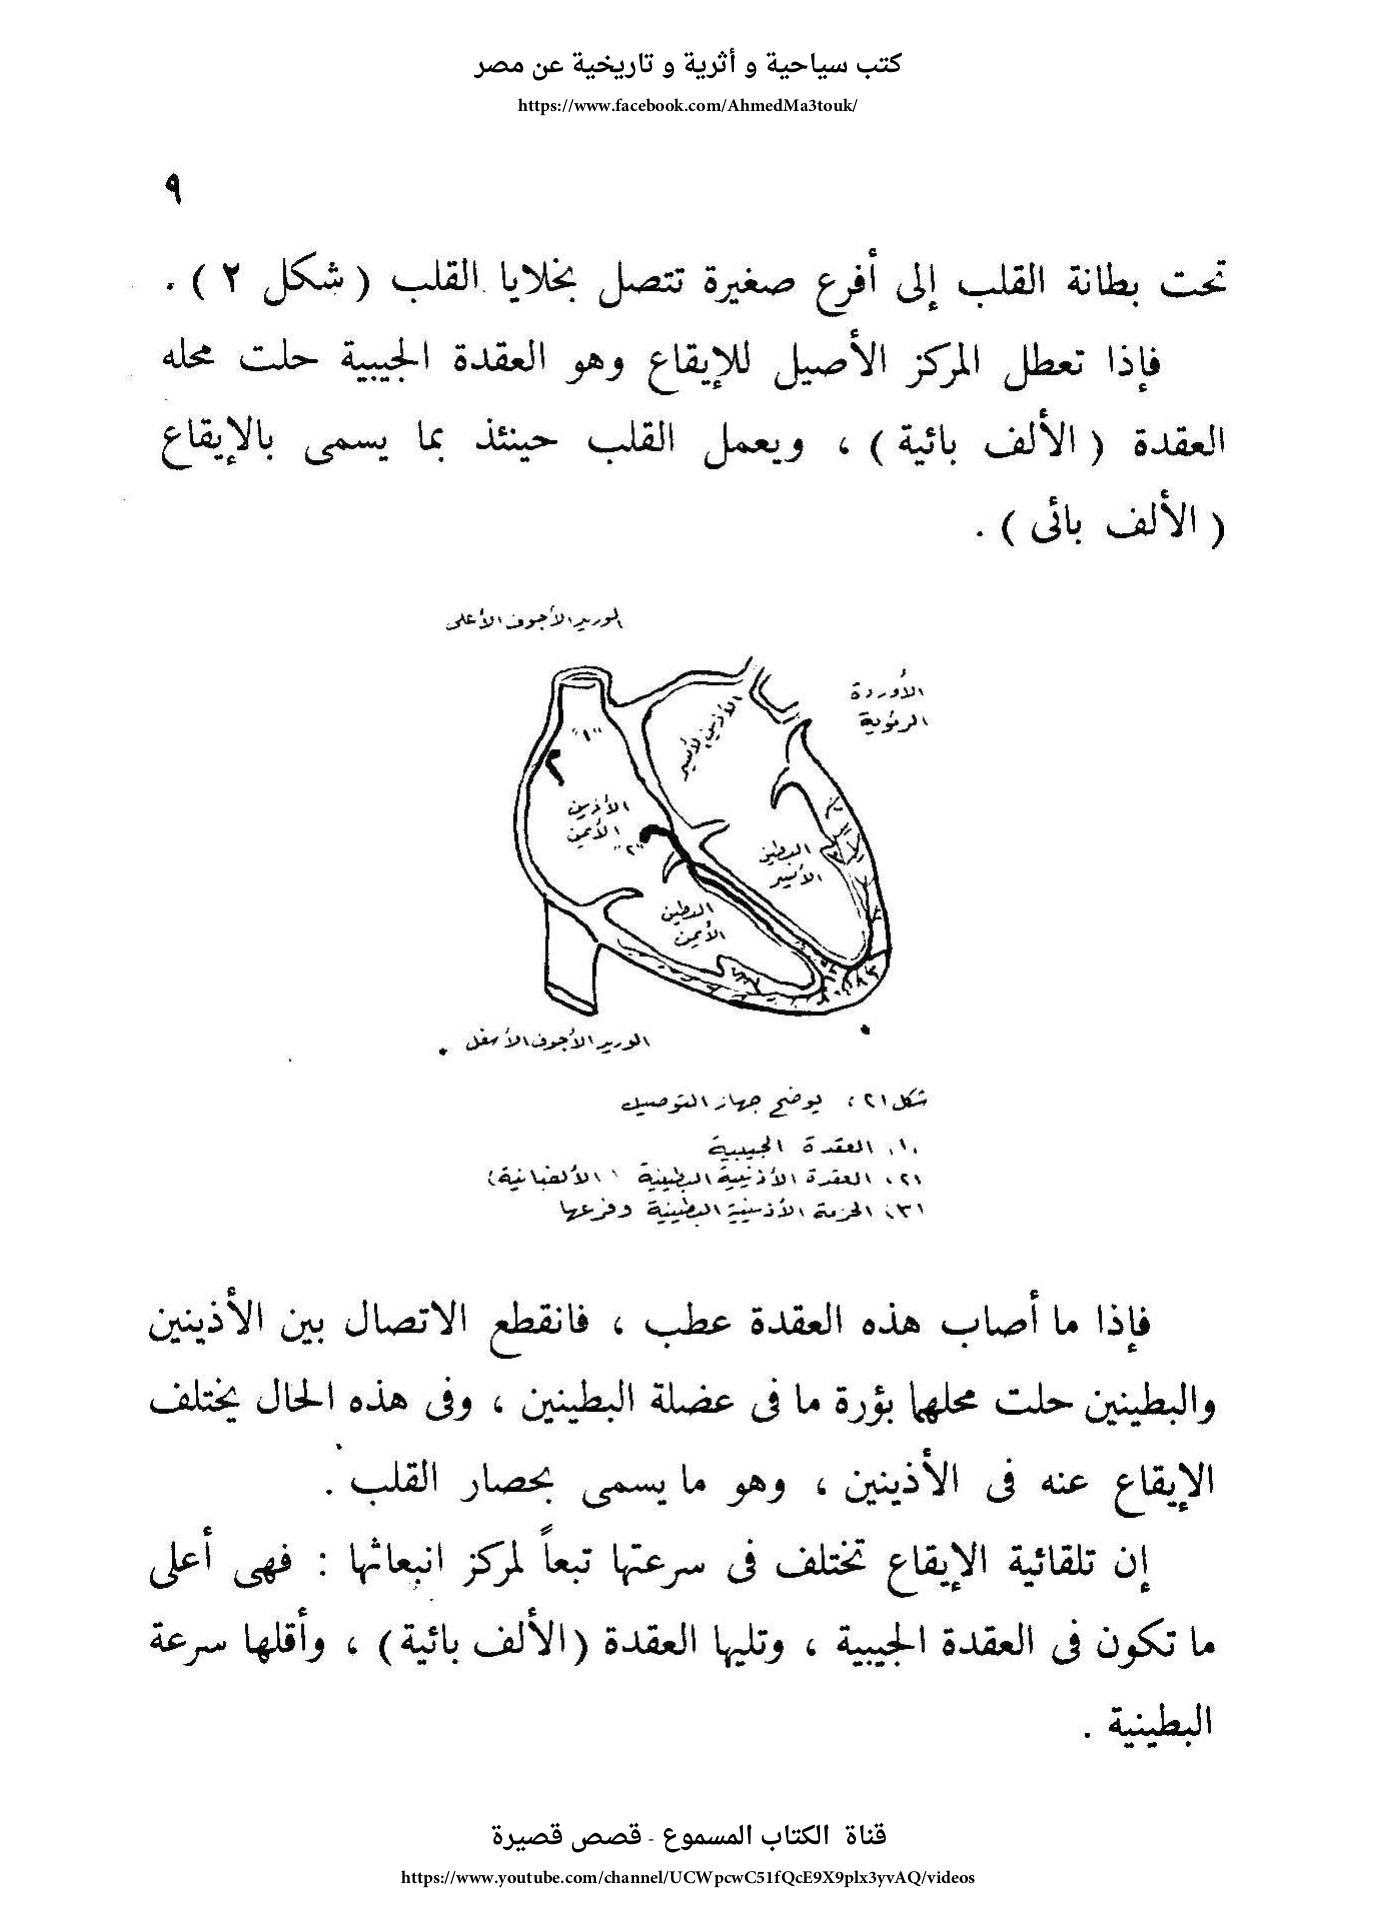 كتب سياحية و أثرية و تاريخية عن مصر
https://www.facebook.com/AhmedMa3touk/
٩
تحت بطانة القلب إلى أفرع صغيرة تتصل بخلايا القلب ( شكل ٢ ) .
فإذا تعطل المركز الأصيل للإيقاع وهو العقدة الجيبية حلت محله
العقدة ( الألف بائية ) ، ويعمل القلب حينئذ بما يسمى بالإيقاع
( الألف بائى ) .
الوريد الأجوف الأعلى
الأوردة
الرئوية
الأذين الأيسر
"١"
الأذين
الأيمن
"٢"
البطين
الأيسر
البطين
الأيمن
الوريد الأجوف الأسفل
شكل (٢) : يوضح جهاز التوصيل
(١) العقدة الجيبية
(٢) العقدة الأذينية البطينية ( الألفبائية )
(٣) الحزمة الأذينية البطينية وفرعها
فإذا ما أصاب هذه العقدة عطب ، فانقطع الاتصال بين الأذينين
والبطينين حلت محلهما بؤرة ما فى عضلة البطينين ، وفى هذه الحال يختلف
الإيقاع عنه فى الأذينين ، وهو ما يسمى بحصار القلب .
إن تلقائية الإيقاع تختلف فى سرعتها تبعاً لمركز انبعاثها : فهى أعلى
ما تكون فى العقدة الجيبية ، وتليها العقدة (الألف بائية) ، وأقلها سرعة
البطينية .
قناة الكتاب المسموع - قصص قصيرة
https://www.youtube.com/channel/UCWpcwC51fQcE9X9plx3yvAQ/videos